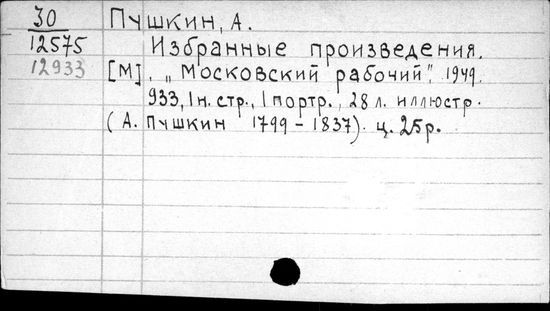 30 Пушкин, А.
12575 Избранные произведения.
12933 [М], „Московский рабочий", 1949.
933, 1 н. стр., 1 портр., 28 л. иллюстр.
(А. Пушкин 1799 - 1837). ц. 25р.